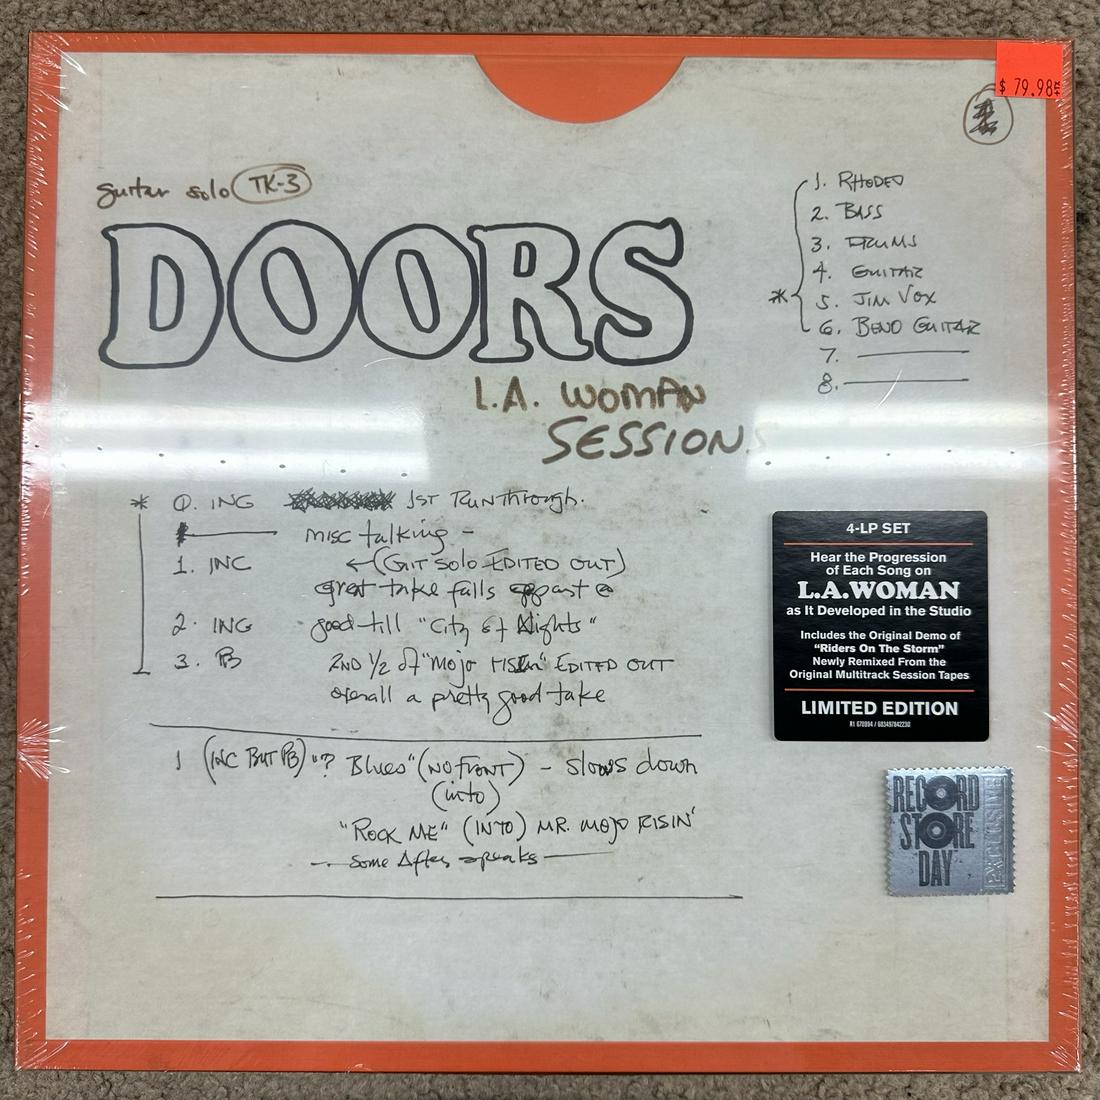 $ 79.98
guitar solo TK-3
DOORS
L.A. WOMAN
SESSIONS
1. RHODES
2. BASS
3. DRUMS
4. GUITAR
* 5. JIM VOX
6. BENO GUITAR
7.
8.
* 0. ING 1ST RUNthrough.
misc talking -
1. INC ←(GIT SOLO EDITED OUT)
great take falls apart @
2. ING good till "City of Nights"
3. PB 2ND 1/2 of "MOJO RISIN" EDITED OUT
overall a pretty good take
1 (INC BUT PB) "? Blues" (NO FRONT) - slows down
(into)
"ROCK ME" (INTO) MR. MOJO RISIN'
- some After speaks -
4-LP SET
Hear the Progression
of Each Song on
L.A.WOMAN
as It Developed in the Studio
Includes the Original Demo of
"Riders On The Storm"
Newly Remixed From the
Original Multitrack Session Tapes
LIMITED EDITION
R1 670994 / 603497842230
RECORD
STORE
DAY
EXCLUSIVE